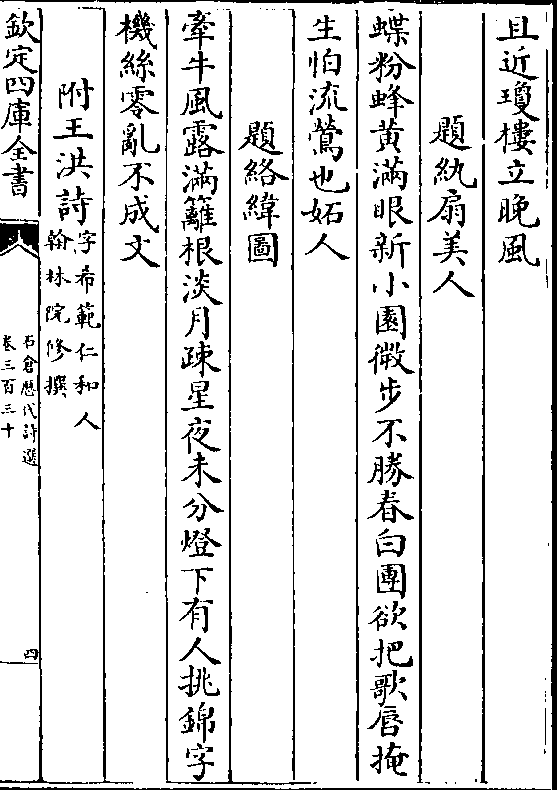 且近瓊樓立晚風
題紈扇美人
蝶粉蜂黄滿眼新小園微步不勝春白團欲把歌唇掩
生怕流鶯也妬人
題絡緯圖
牽牛風露滿籬根淡月疎星夜未分燈下有人挑錦字
機絲零亂不成文
附王洪詩字希範仁和人
翰林院修撰
欽定四庫全書
石倉歴代詩選
卷三百三十
四